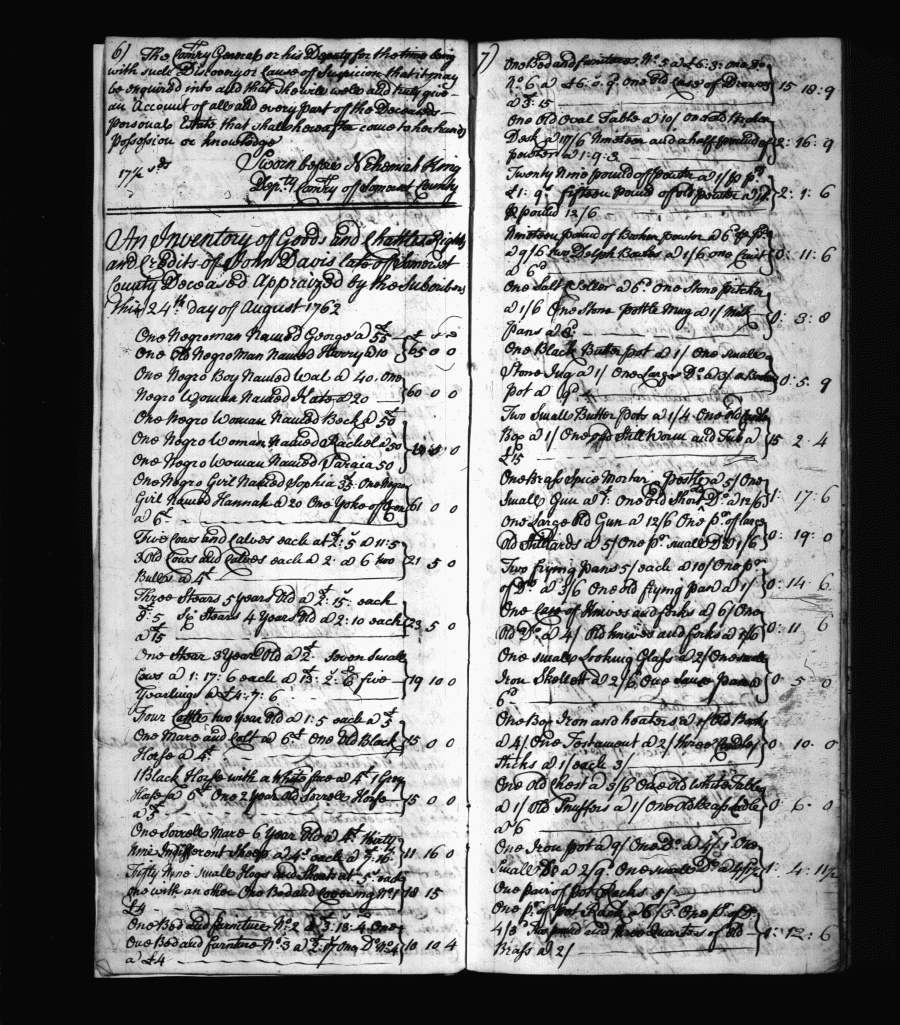 6)
The Comry General or his Deputy for the time being
with such Discovery or Cause of Suspicion that it may
be enquired into and that she will well and truly give
an Account of all and every part of the Deceased
Personal Estate that shall hereafter come to her hands
Possession or knowledge
Sworn before Nehemiah King
Depty Comry of Somerset County
An Inventory of Goods and Chattles Rights
and Credits of John Davis late of Somerset
County Deceased Appraized by the Subscribers
this 24th day of August 1762
One Negroman Named George a £55
One Old Negro Man Named Harry a 10 65 0 0
One Negro Boy Named Wal a 40. One
Negro Woman Named Kate a 20 60 0 0
One Negro Woman Named Beck a £50
One Negro Woman Named Rachel a 50
One Negro Woman Named 50
One Negro Girl Named Sophia 35. One Negro
Girl Named Hannah a 20 One Yoke of Oxen 61 0 0
a 6£
Five Cows and Calves each at £2:5 a 11:5
3 Old Cows and Calves each a 2: a 6 two 21 5 0
Bulls a 4£
Three Stears 5 years Old a £2:15: each
8:5 Six Stears 4 Years Old a 2:10 each 23 5 0
a £15
One Stear 3 Year Old a £2: Seven Small
Cows a 1:17:6 each a £13:2:6 five 19 10 0
Yearlings a £4:7:6
Four Cattle two Year Old a 1:5 each a £5
One Mare and Colt a 6£ One Old Black 15 0 0
Horse a 4£
1 Black Horse with a White face a 4£ 1 Grey
Horse a 6£ One 2 year Old Sorrell Horse 15 0 0
a £5
One Sorrell Mare 6 Year Old a 4£ Thirty
Nine Indifferent Sheep a 4s each a £7:16: 11 16 0
Thifty Nine Small Hogs and Shoats at 5s each
one with an other One Bed and Covering No 1 18 15
£4
One Bed and furniture No 2 a £3:13:4 One
One Bed and furniture No 3 a £2:17 One Do No 4 10 10 4
a £4
7)
One Bed and furniture No. 5 a £6:3: One Do
No 6 a £6:0:9 One Old Case of Drawers 15 18:9
a £3:15
One Old Oval Table a 10/ One Old Broken
Desk a 17/6 Nineteen and a half pound of 2:16:9
pewter a 1:9:3
Twenty Nine pound of Pewter a 1/ p pd
£1:9s fifteen Pound of old pewter a 2:1:6
p pound 12/6
Nineteen pound of Broken pewter a 6d p pd
a 9/6 two Delph Bowles a 1/6 one Cruit 0:11:6
a 6d
One Salt Seller a 6d One Stone pitcher
a 1/6 One Stone Pottle Mug a 1/ Milk 0:3:8
Pans a 8d
One Black Butter pot a 1/ One Small
Stone Jug a 1/ One Large Do a 3/ a Butter 0:5:9
pot a 9d
Two Small Butter Pots a 1/4 One Old
Box a 1/ One old Still Worm and Tub a 15 2 4
£15
One Brass Spice Mortar Pestle a 5/ One
Small Gun a £1: One old Short Do a 12/6 1:17:6
One Large Old Gun a 12/6 One pr of large
Old Stilliards a 5/ One pr small Do 1/6 0:19:0
Two frying pans 5/ each a 10/ One pr
of Do a 3/6 One old frying pan a 1/ 0:14:6
One Case of Knives and forks a 6/ One
Old Do a 4/ Old knives and forks a 1/6 0:11 6
One small Looking Glass a 2/ One small
Iron Skellet a 2/6 One Sause pan a 0 5 0
6d
One Box Iron and heaters a 1/ Old Book
a 4/ One Testament a 2/ three Candle 0 10 0
Sticks a 1/ each 3/
One Old Chest a 3/6 One Old White Table
a 1/ Old Snuffers a 1/ One Old Brass Ladle 0 6 0
a /6
One Iron pot a 9/ One Do a 4/ One
Small Do a 2/9 One small Do a 1:4:11½
One pair of pot Racks 5/
One pr of pot Racks a 6/3 One pr of Do
4/8 Two pound and three Quarters of Old 0:12:6
Brass a 2/